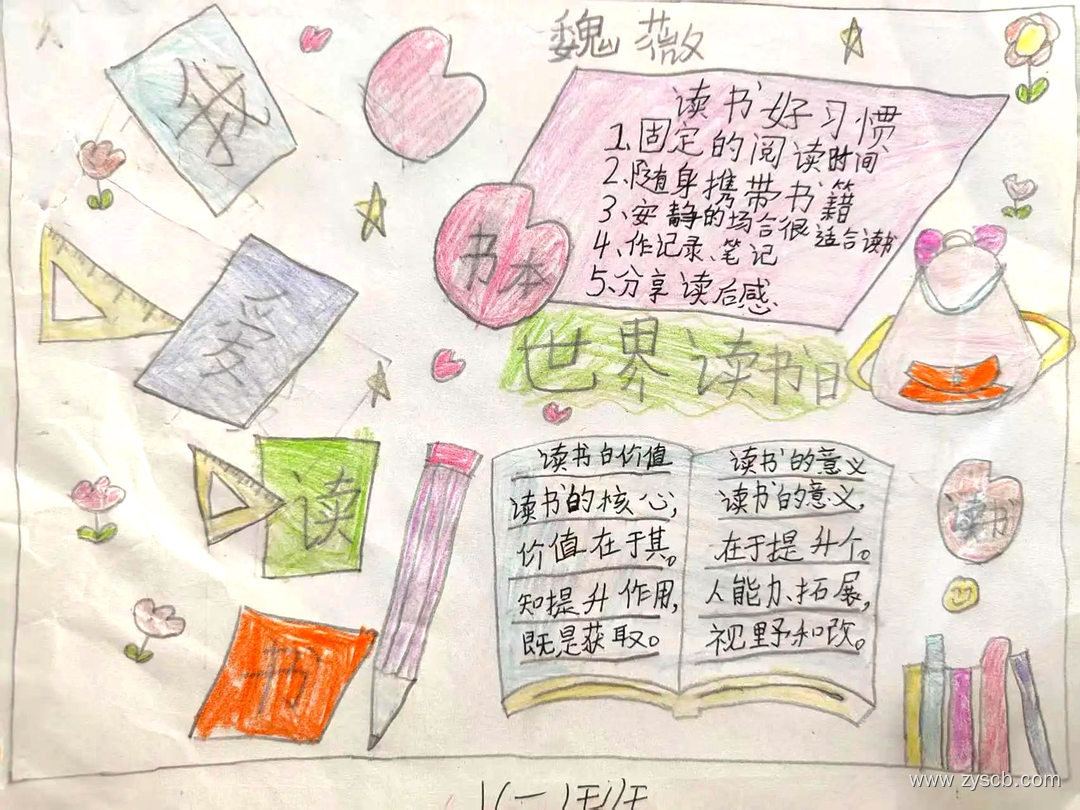 魏薇
我
爱
读
书
读书好习惯
1、固定的阅读时间
2、随身携带书籍
3、安静的场合很适合读书
4、作记录、笔记
5、分享读后感
书本
世界读书日
读书白价值
读书的核心,
价值在于其。
知提升作用,
既是获取。
读书的意义
读书的意义,
在于提升个。
人能力、拓展,
视野和改。
读书
www.zyscb.com